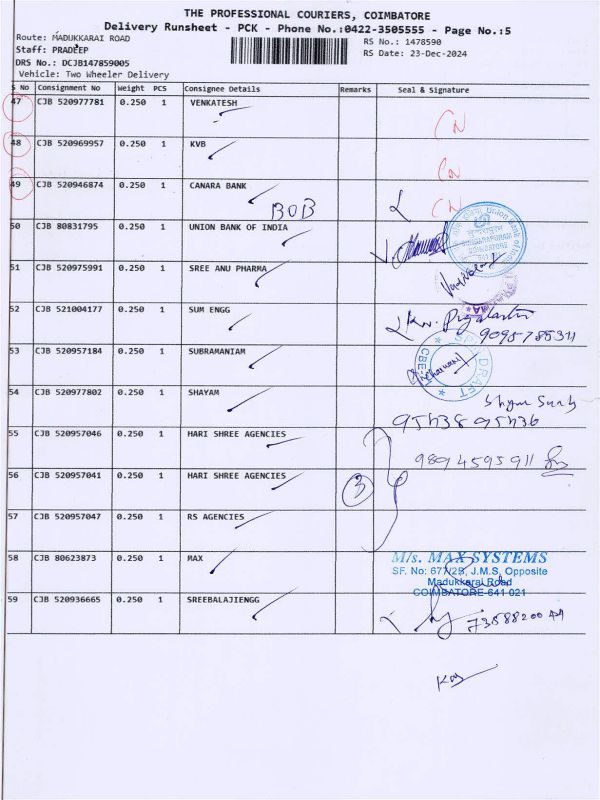 THE PROFESSIONAL COURIERS, COIMBATORE
Delivery Runsheet - PCK - Phone No.:0422-3505555 - Page No.:5
Route: MADUKKARAI ROAD
Staff: PRADEEP
DRS No.: DCJB147859005
Vehicle: Two Wheeler Delivery
RS No.: 1478590
RS Date: 23-Dec-2024
S No Consignment No Weight PCS Consignee Details Remarks Seal & Signature
47 CJB 520977781 0.250 1 VENKATESH CN
48 CJB 520969957 0.250 1 KVB CN
49 CJB 520946874 0.250 1 CANARA BANK CN
BOB
50 CJB 80831795 0.250 1 UNION BANK OF INDIA
51 CJB 520975991 0.250 1 SREE ANU PHARMA
52 CJB 521004177 0.250 1 SUM ENGG
9095785311
53 CJB 520957184 0.250 1 SUBRAMANIAM
54 CJB 520977802 0.250 1 SHAYAM
9543895436
55 CJB 520957046 0.250 1 HARI SHREE AGENCIES
9894595911
56 CJB 520957041 0.250 1 HARI SHREE AGENCIES
3
57 CJB 520957047 0.250 1 RS AGENCIES
58 CJB 80623873 0.250 1 MAX
M/s. MAX SYSTEMS
SF. No: 677/2B, J.M.S, Opposite
Madukkarai Road
COIMBATORE-641 021
59 CJB 520936665 0.250 1 SREEBALAJIENGG